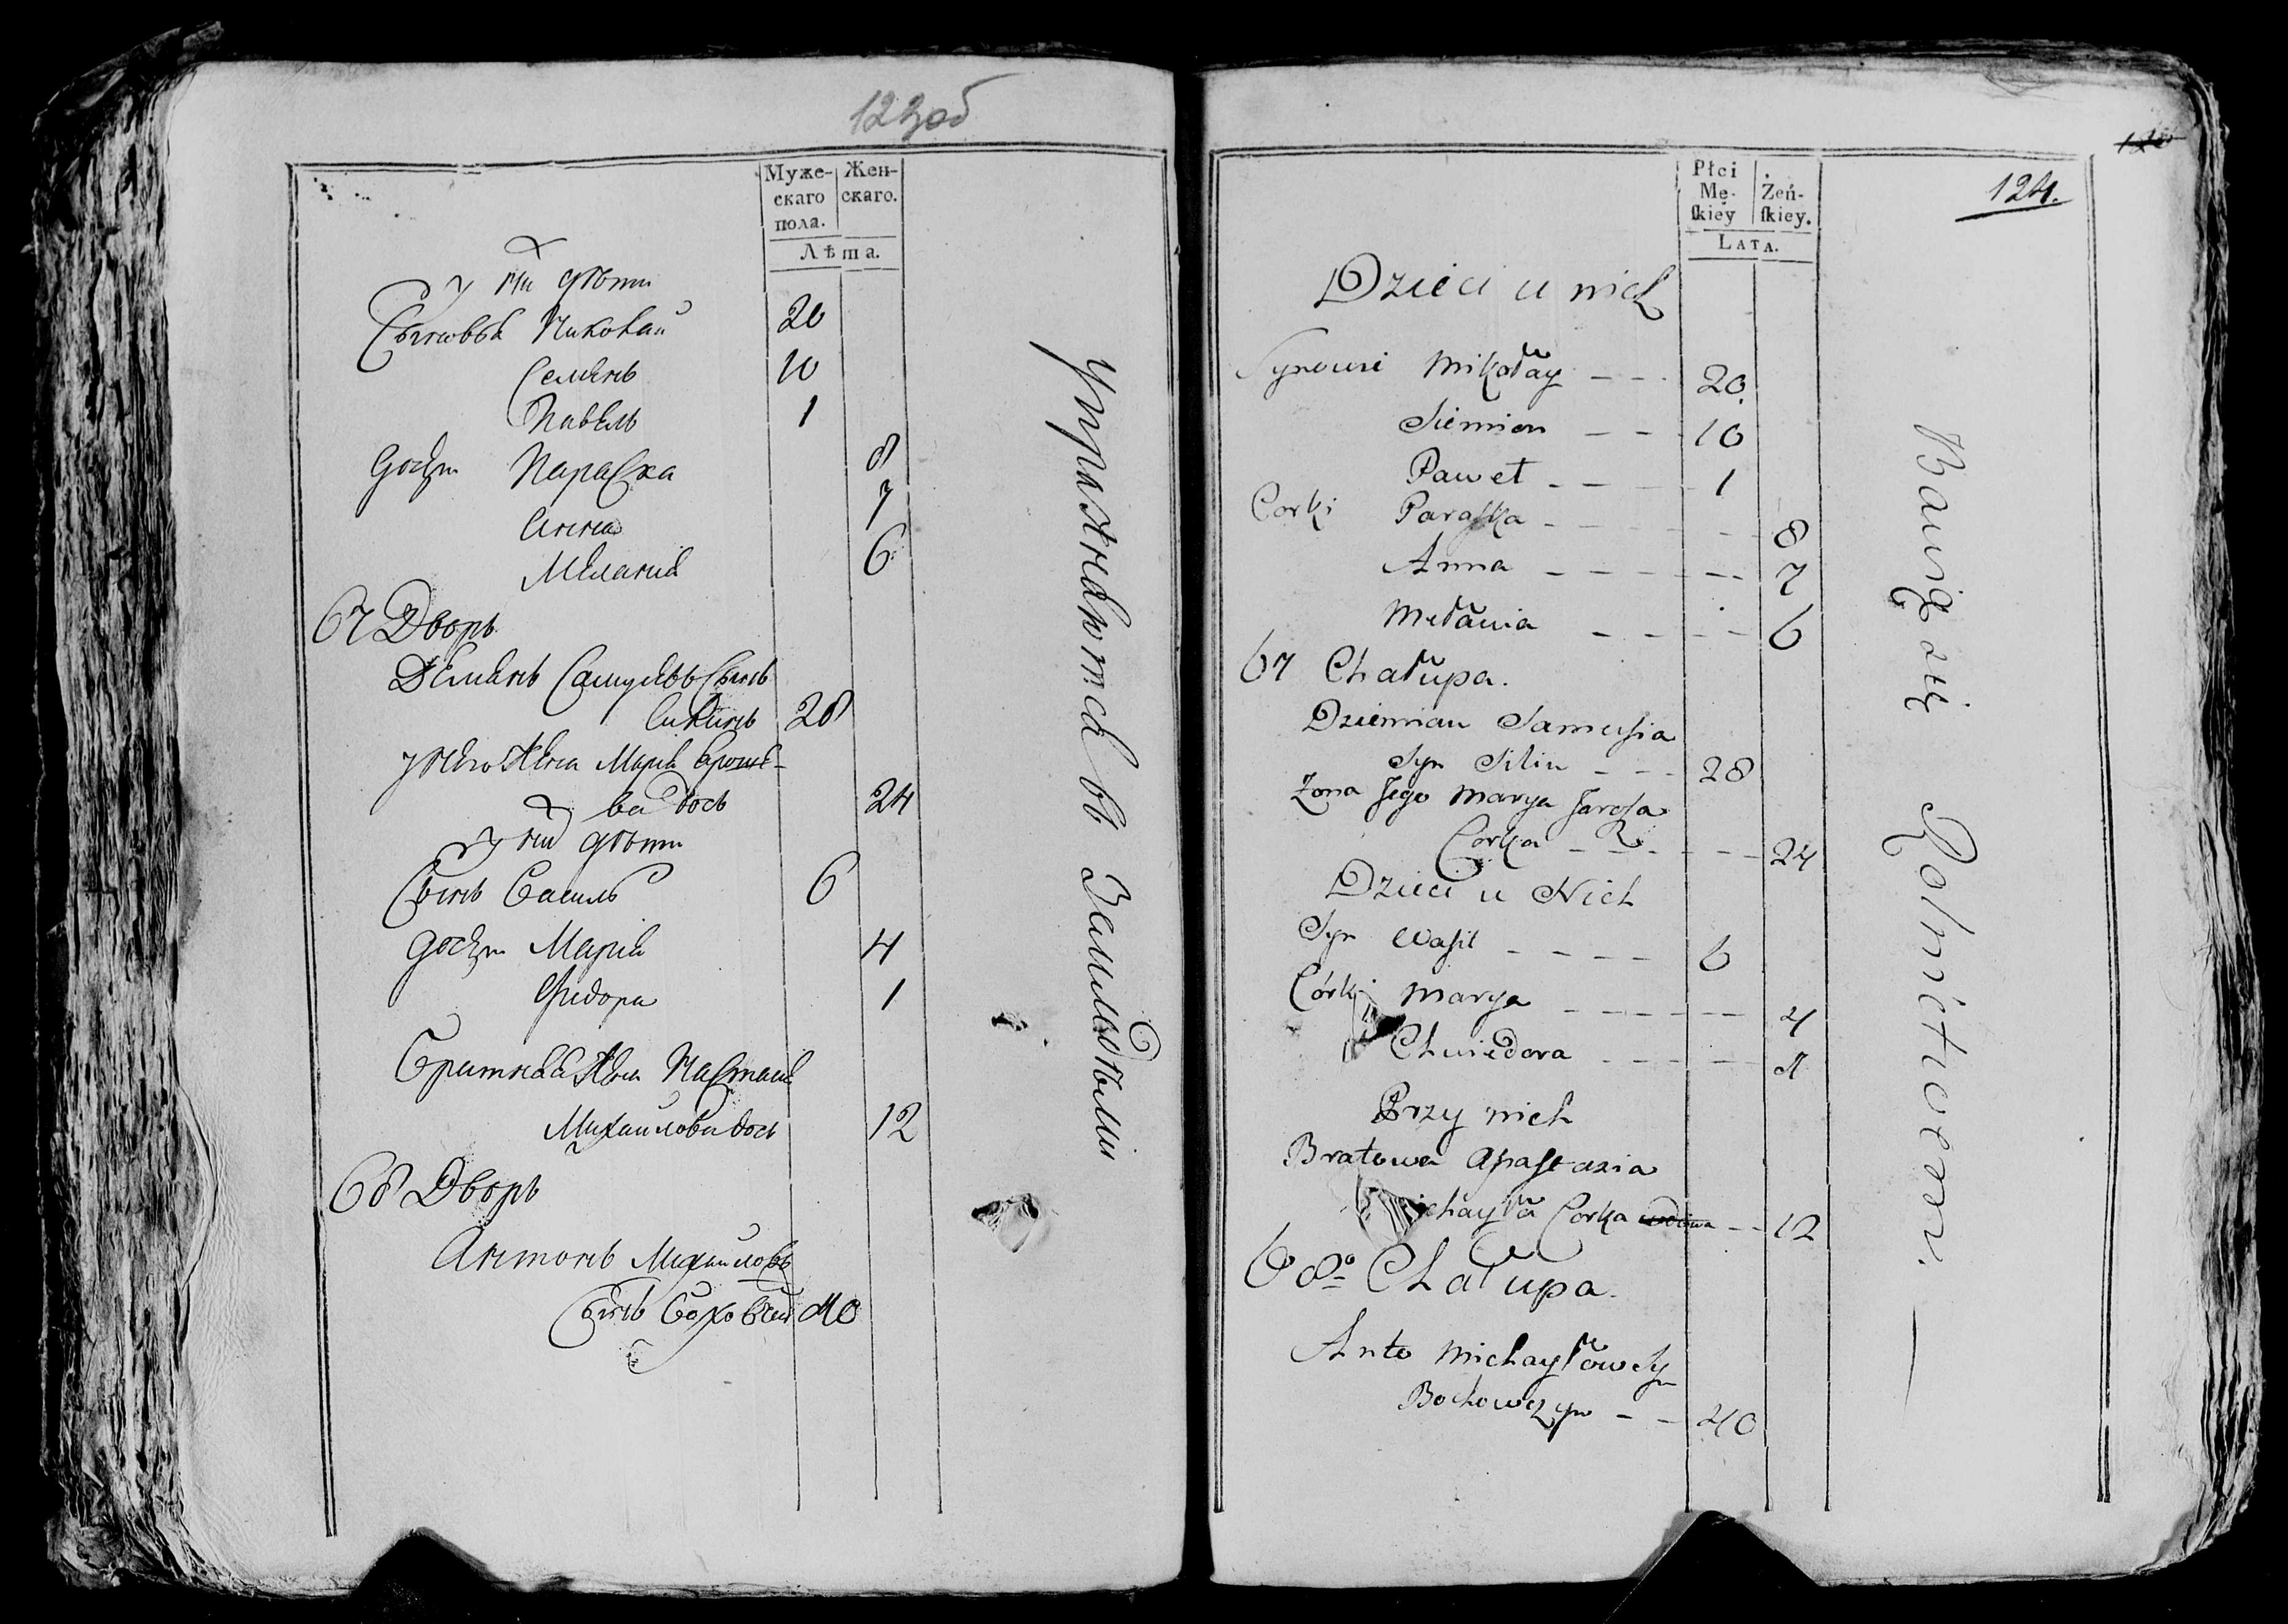 123об
Муже-
скаго
пола.
Жен-
скаго.
Лѣта.
у ни дѣти
Сыновья Николай 20
Семянъ 10
Павелъ 1
дочки Параска 8
Анна 7
Меланія 6
67 Дворъ
Демянъ Самусявъ Сынъ
Силинъ 28
у него Жена Марія Ероше-
ва дочь 24
у ни дѣти
Сынъ Василь 6
дочки Марія 4
Федора 1
Братняя Жена Настасія
Михаилова дочь 12
68 Дворъ
Антонъ Михаиловъ
Сынъ 40
Упражняются въ Земледѣліи
124.
Płci
Mę-
ſkiey
Żeń-
ſkiey.
LATA.
Dzieci u nich
Synowie Mikołay - - 20
Siemion - - 10
Paweł - - - 1
Corki Paraſka - - - 8
Anna - - - - - 7
Mełania - - - - 6
67 Chałupa.
Dziemian Samuſia
Syn Silin - - - 28
Zona Jego Marya Jaroſa
Corka - - - - 24
Dzieci u Nich
Syn Waſil - - - - 6
Córki Marya - - - - - - 4
Chwiedora - - - - 1
Przy nich
Bratowa Anaſtazia
Michayła Corka wdowa - - 12
68º Chałupa.
Anto Michayłow Sy
Bochowczyn - - 40
Bawią się Rolnictwem. —